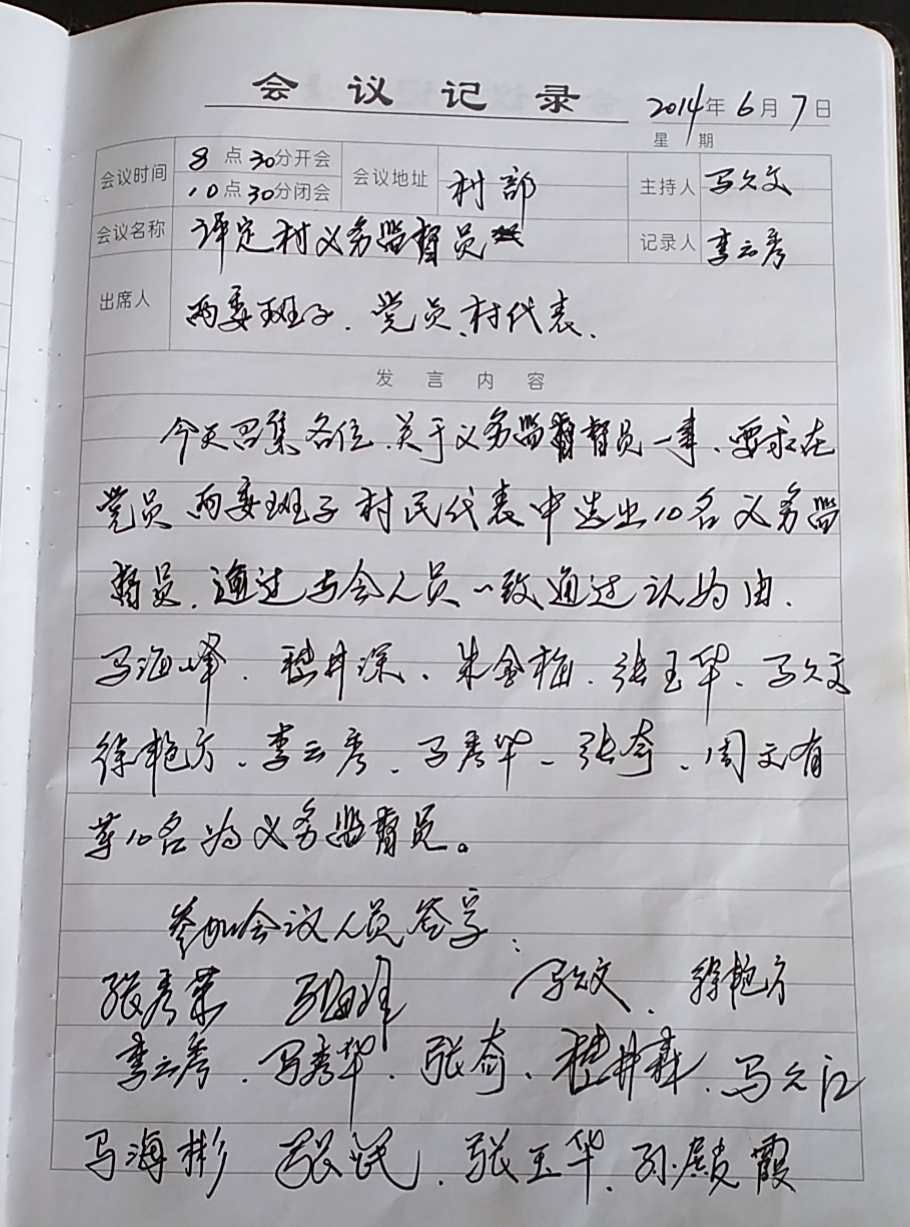 会议记录
2014年6月7日
星期
会议时间 8点30分开会 会议地址 村部 主持人 马久文
10点30分闭会
会议名称 评定村义务监督员 记录人 李云秀
出席人 两委班子、党员、村代表、
发言内容
今天召集各位、关于义务监督员一事、要求在
党员两委班子村民代表中选出10名义务监
督员、通过与会人员一致通过认为由、
马海峰、井深、朱金梅、张玉华、马久文
徐艳方、李云秀、马秀华、张奇、周文有
等10名为义务监督员。
参加会议人员签字:
张秀荣 马海峰 马久文、徐艳方
李云秀、马秀华、张奇、井、马久江
马海彬 张、张玉华、孙殿霞